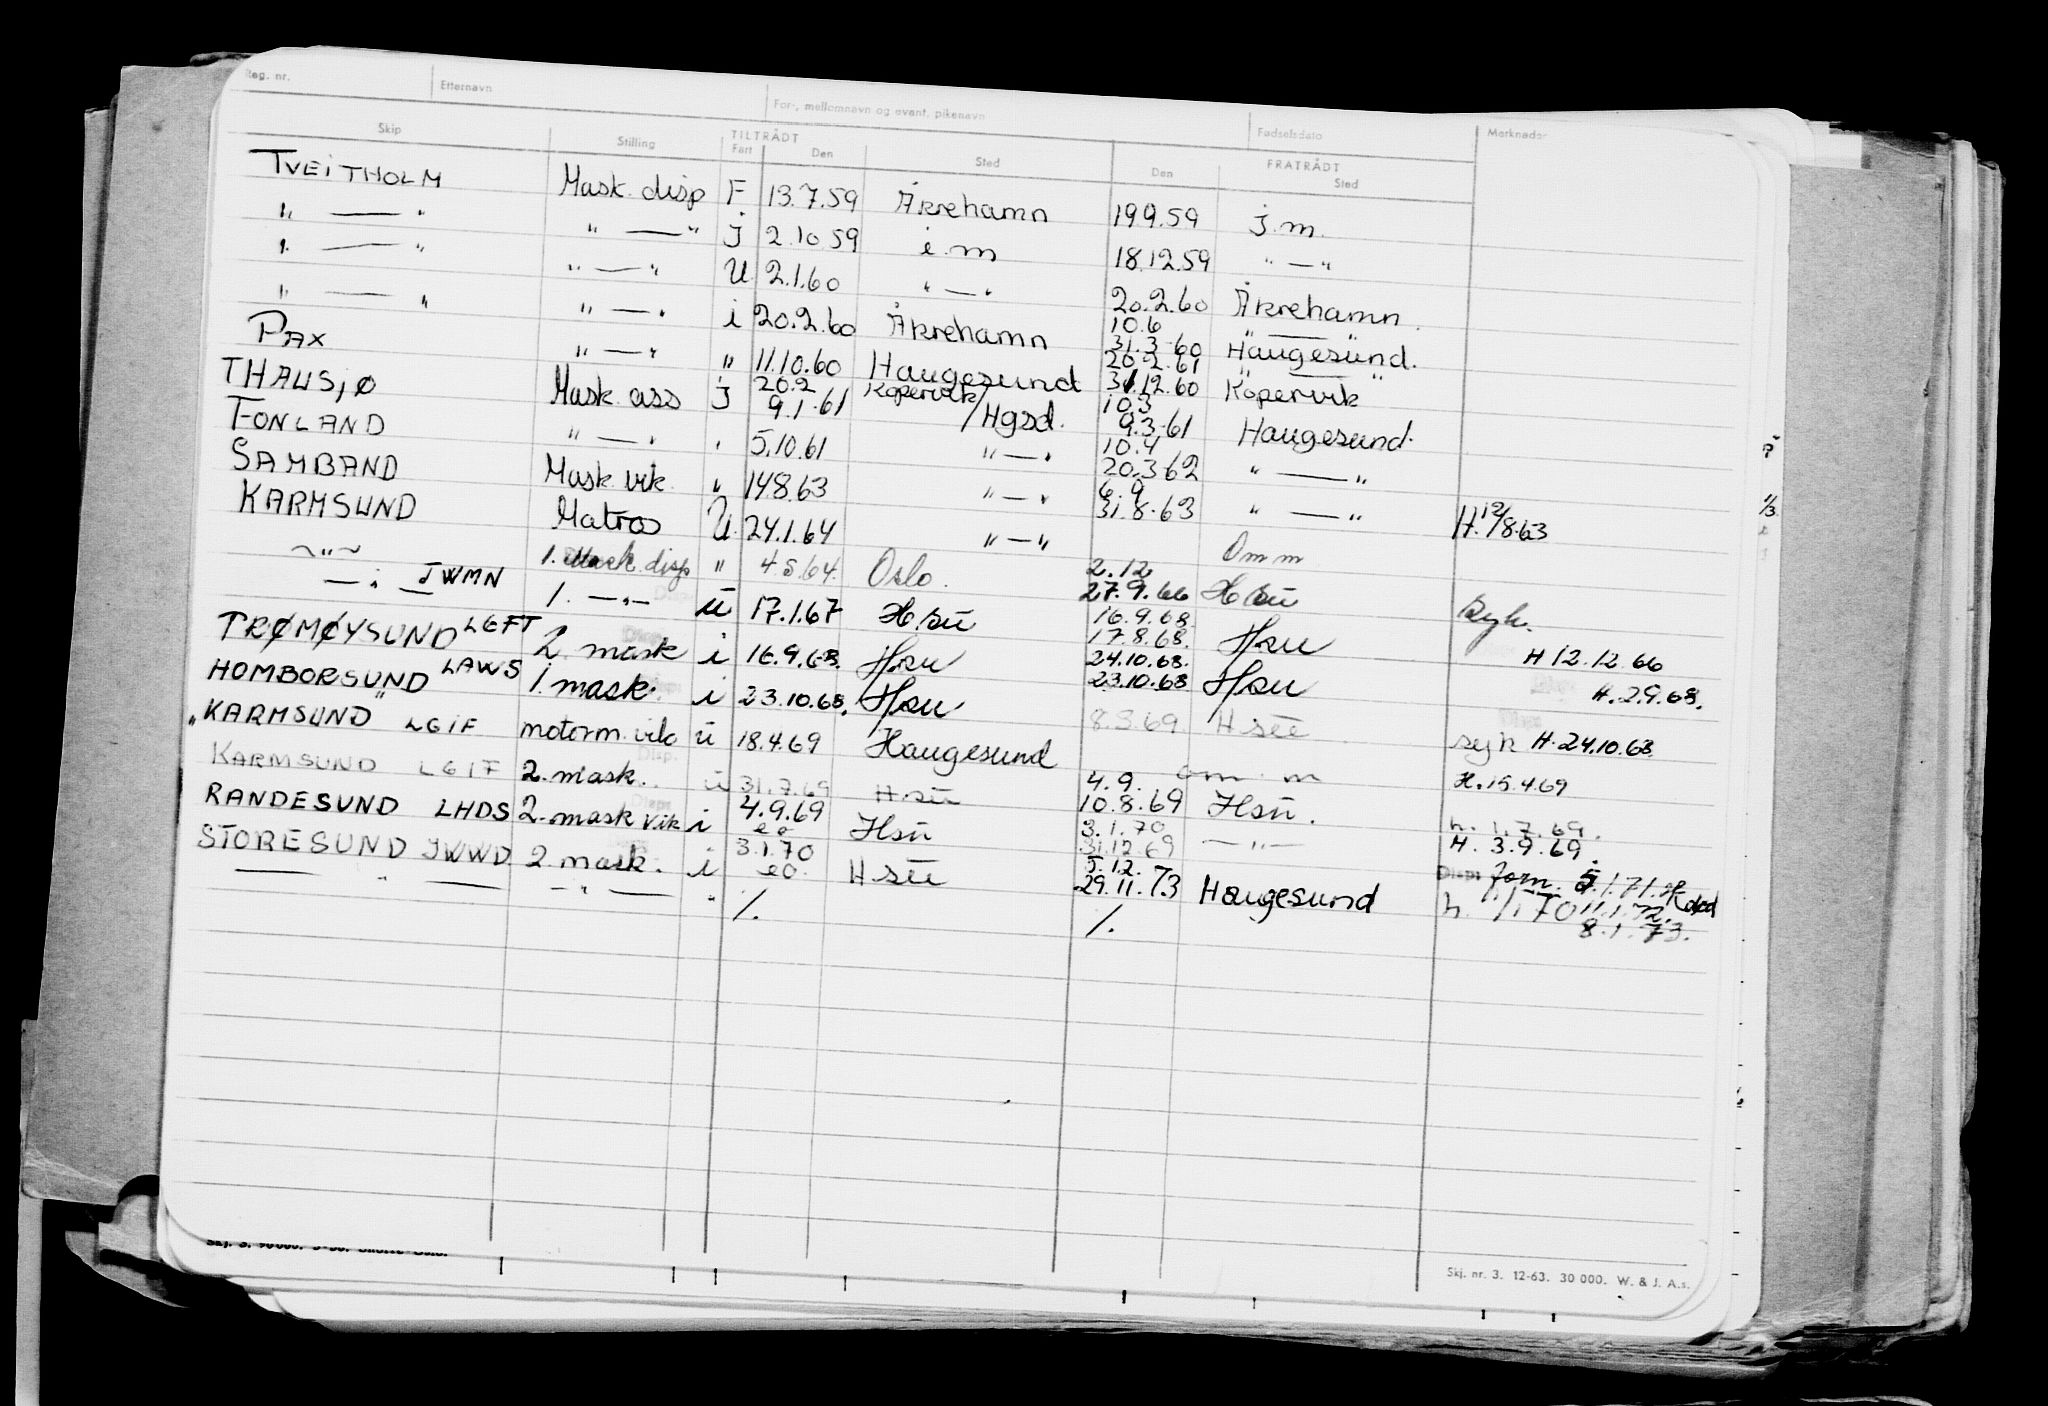 Reg. nr. Etternavn For-, mellomnavn og event. pikenavn Fødselsdato Merknader
Skip Stilling TILTRÅDT Fart Den Sted FRATRÅDT Den Sted
TVEITHOLM Mask. disp F 13.7.59 Åkrehamn 19.9.59 j.m.
" — " " — " j 2.10 59 i m 18.12.59 " — "
" — " " — " U 2.1.60 " — " 20.2.60 Åkrehamn.
" — " " — " i 20.2.60 Åkrehamn 10.6 31.3 60 " — Haugesund.
PAX " — " " 11.10.60 Haugesund 20.2.61 31.12.60 " — " Kopervik
THAUSJØ Mask. ass j 20.2 9.1.61 Kopervik/Hgsd. 10.3 9.3.61 Haugesund.
FONLAND " — " " 5.10.61 " — " 10.4 20.3.62 " — "
SAMBAND Mask vik. " 14.8.63 " — " 6.9 31.8.63 " — " H.12/8.63
KARMSUND Matros U 24.1.64 " — " Om m
~ " ~ 1. Mask. disp " 4.5.64. Oslo. 2.12 27.9.66 H su syk.
— " — JWMN 1. — " — u 17.1.67 H.su 16.9.68. 17.8.68. Hsu H 12.12.66
TRØMØYSUND LGFT 2. mask i 16.9.68. Hsu 24.10.68. 23.10.68 Hsu H.2.9.68.
HOMBORSUND LAWS 1. mask. i 23.10.68. Hsu 8.3.69. H su syk H.24.10.68.
"KARMSUND" LGIF motorm. vik u 18.4.69 Haugesund om m H.15.4.69
KARMSUND LGIF 2. mask. u 31.7.69 H su 4.9. 10.8.69 Hsu. h. 1.7.69.
RANDESUND LHDS 2. mask vik i 4.9.69 eo Hsu 3.1.70 31.12.69 — " — H. 3.9.69
STORESUND JWWD 2. mask. i 3.1.70 eo. H su 5.12. 29.11.73 Haugesund h. 1/1.70 5.1.71.
— " — — " — " /. /. 11.1.72.
8.1.73.
Skj. nr. 3. 12-63. 30 000. W. & J. A.s.